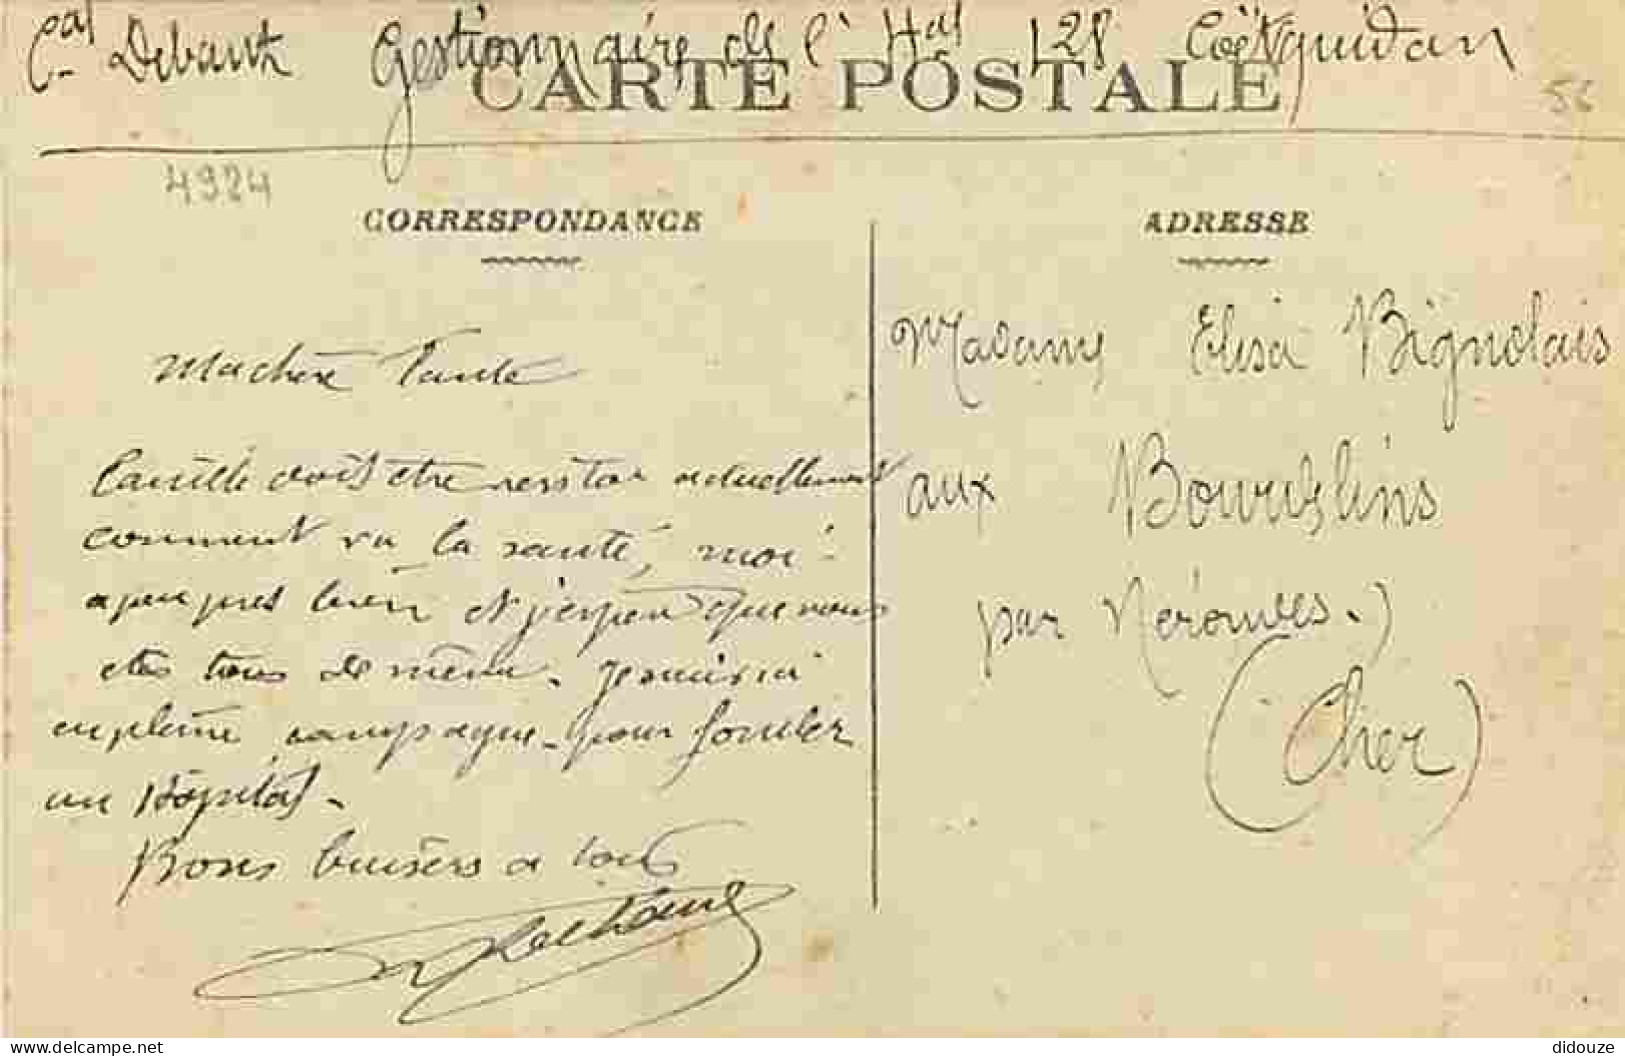 Cal Debaux Gestionnaire de l' Hal 128 Coëtquidan
CARTE POSTALE
56
4924
CORRESPONDANCE
ADRESSE
Ma chère Tante
Camille doit être actuellement
comment va la santé, moi
a peu pres bien et j'espère que vous
etes tous de même. Je suis ici
en pleine campagne pour
un Hôpital.
Bons baisers a tous
Madame Elisa Bignolais
aux
par Nérondes.
(Cher)
delcampe.net
didouze